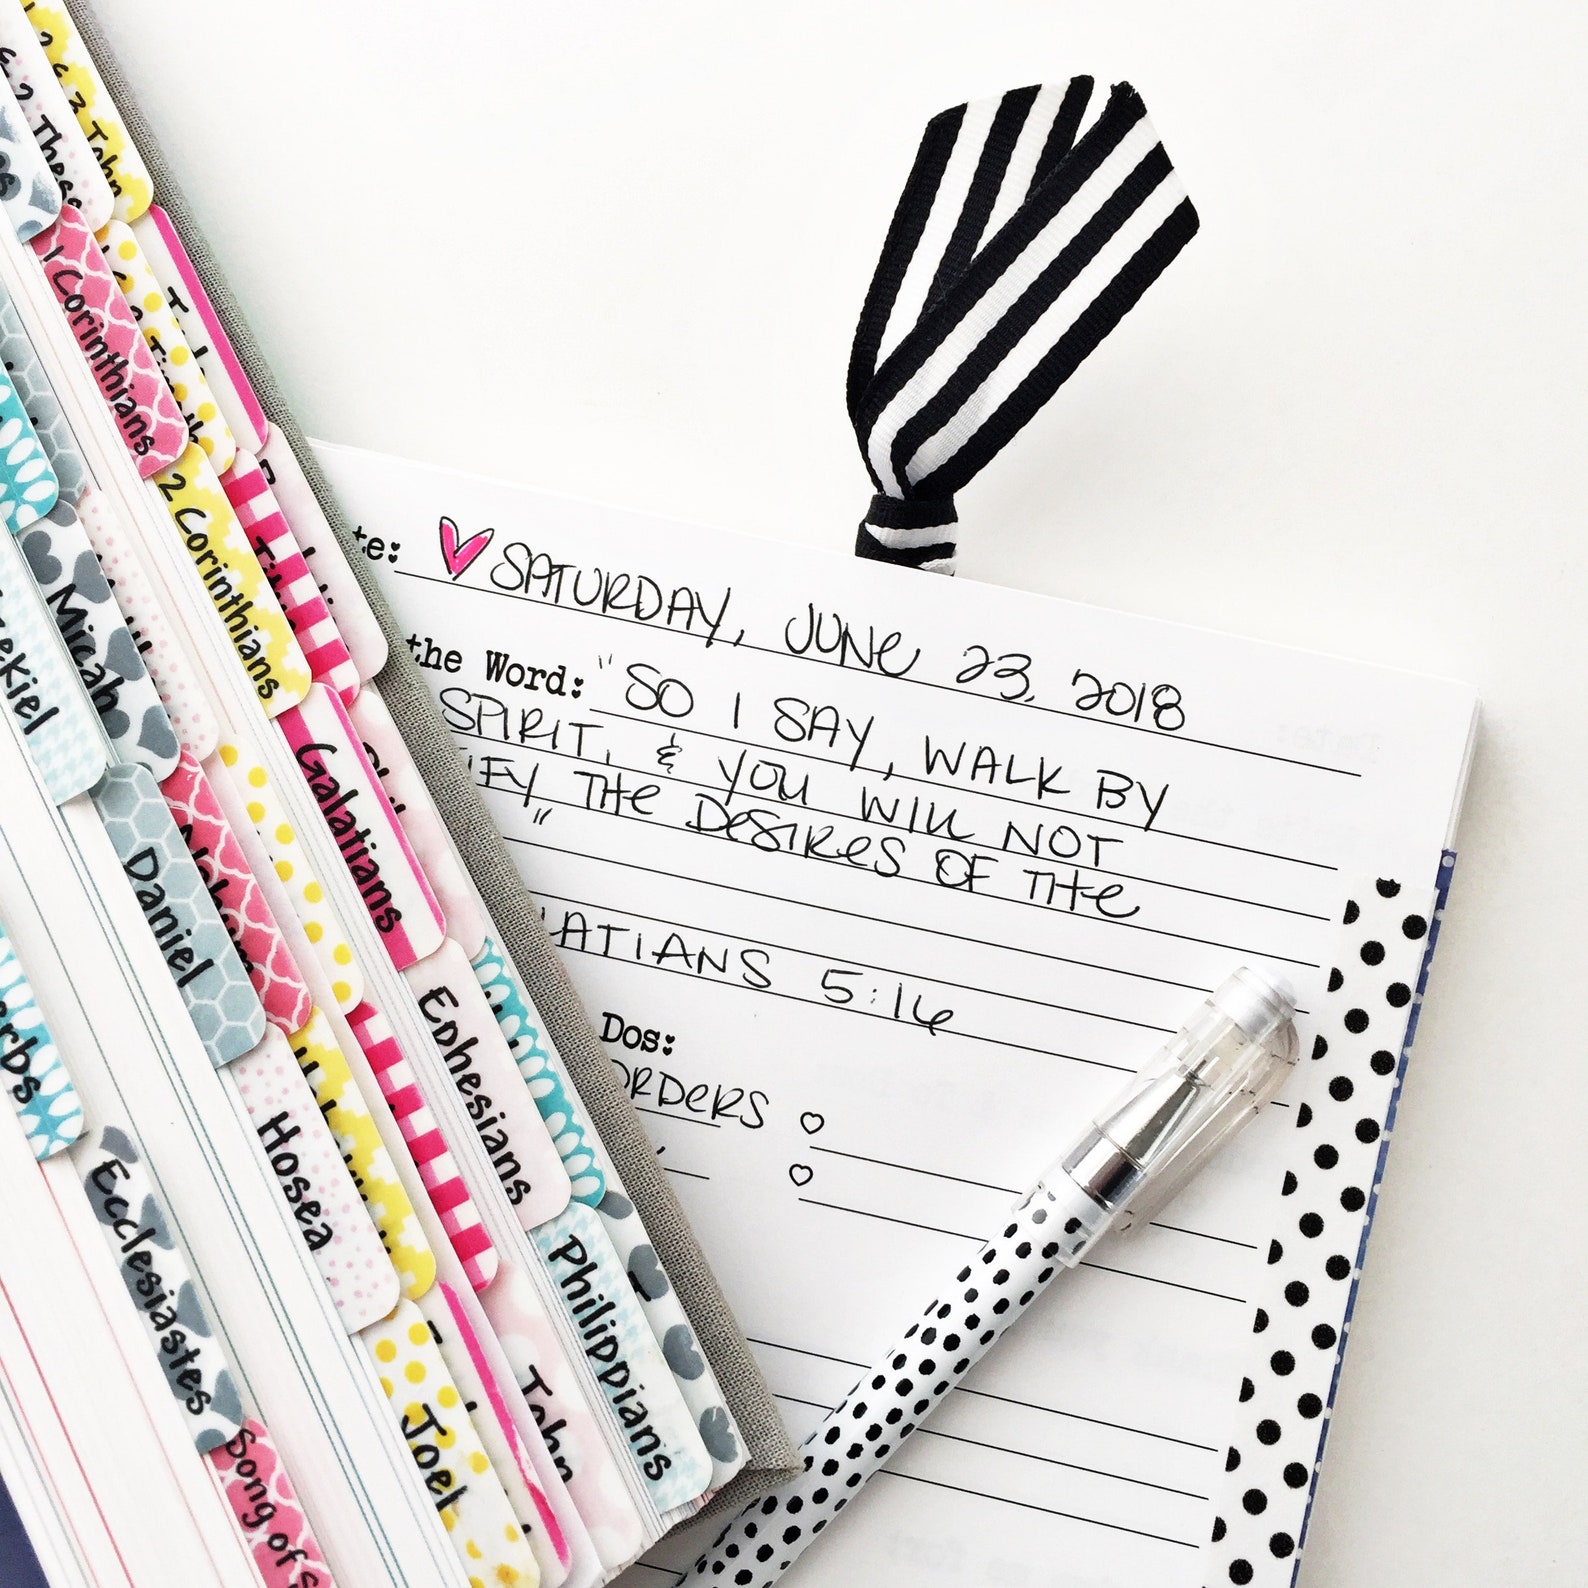 2 & 3 John
& 2 Thess
1 Corinthians
2 Corinthians
Galatians
Ephesians
Philippians
Micah
Daniel
Hosea
Joel
John
Ecclesiastes
Song of
te:
SATURDAY, JUNE 23, 2018
the Word: "SO I SAY, WALK BY
SPIRIT, & YOU WILL NOT
IFY THE DESIRES OF THE
"
LATIANS 5:16
Dos:
ORDERS